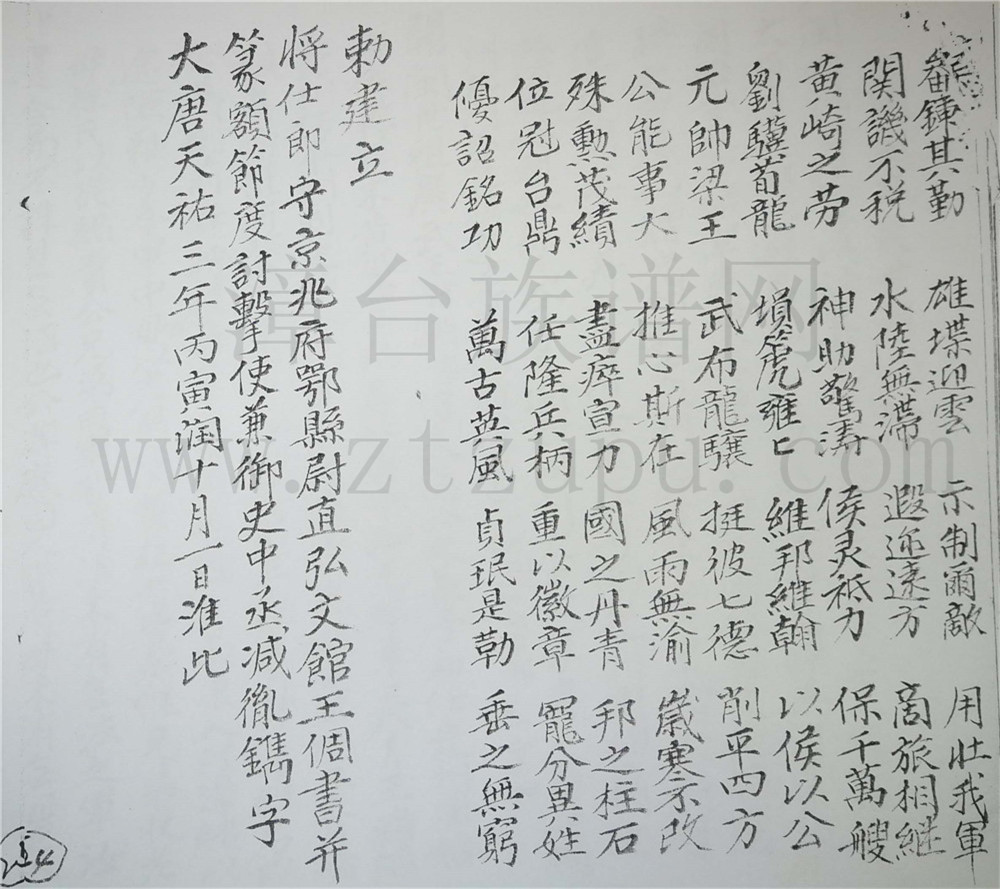 畚鍤其勤 雄堞迎雲 示制爾敵 用壯我軍
関譏不税 水陸無滯 遐迩遠方 商旅相継
黄崎之劳 神助驚涛 侯灵祗力 保千萬艘
劉驥荀龍 塤箎雍匕 維邦維翰 以侯以公
元帥梁王 武布龍驤 挺彼七德 削平四方
公能事大 推心斯在 風雨無渝 嵗寒不改
殊勲茂績 盡瘁宣力 國之丹青 邦之柱石
位冠台鼎 任隆兵柄 重以徽章 寵分異姓
優詔銘功 萬古英風 貞珉是勒 垂之無窮
勅建立
将仕郎守京兆府鄂縣尉直弘文館王倜書并
篆額節度討擊使兼御史中丞减胤鐫字
大唐天祐三年丙寅润十月一日准此
漳台族谱网
www.ztzupu.com